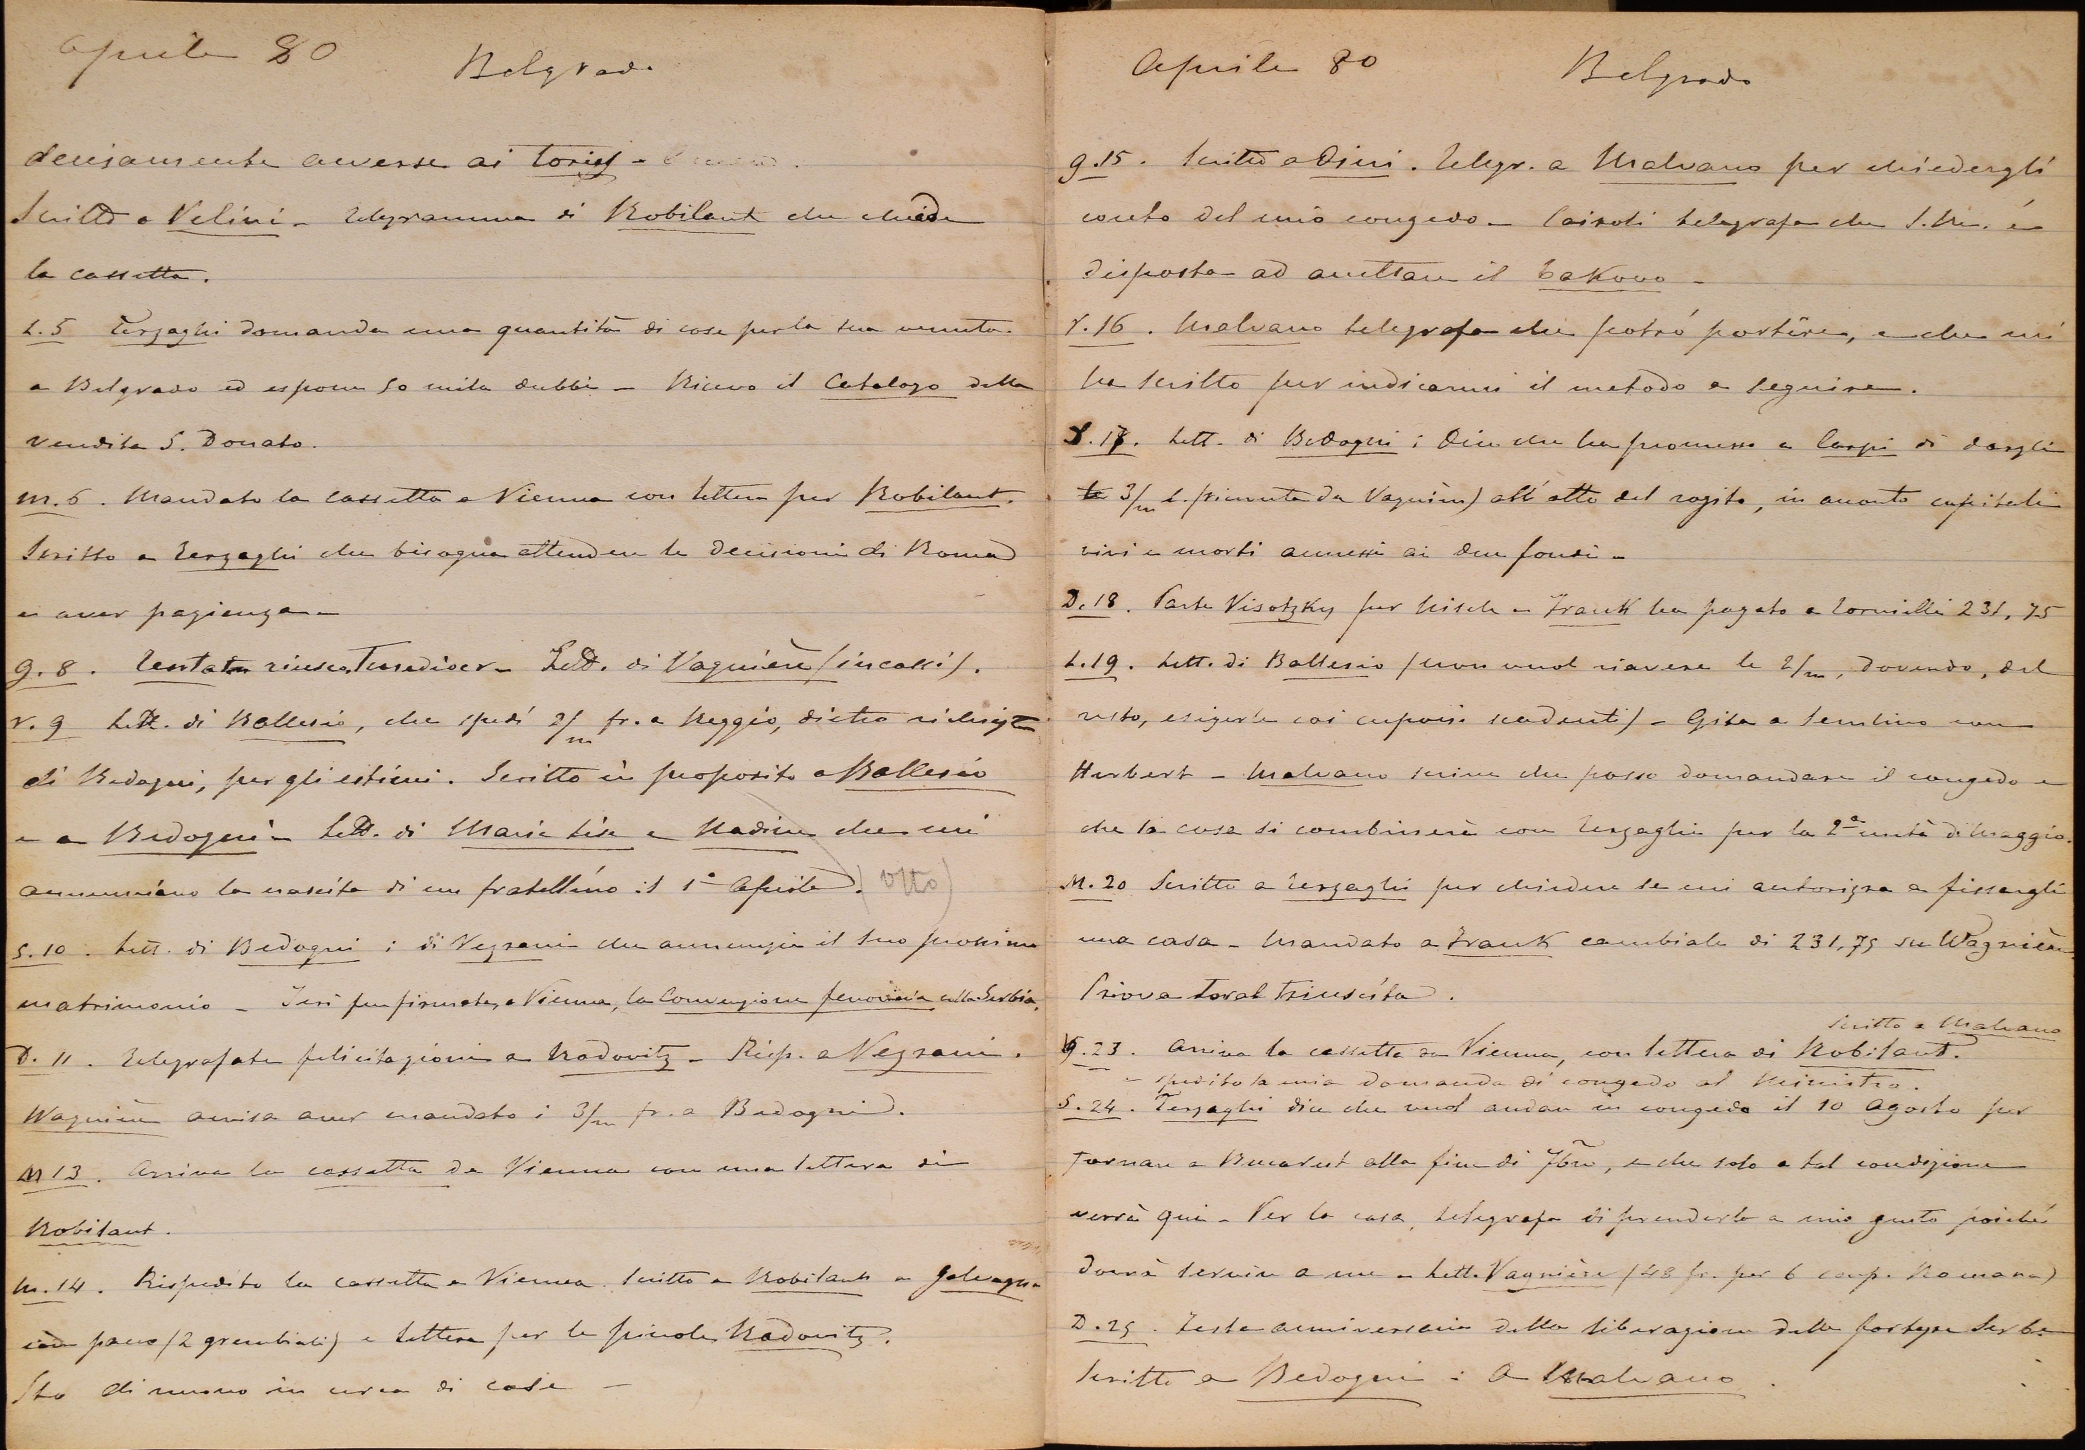 Aprile 80 Belgrado
decisamente avverse ai tories -
Scritto a Velini - Telegramma di Robilant che chiede
la cassetta.
L. 5 Terzaghi domanda una quantità di cose per la sua venuta
a Belgrado ed espone 50 mila dubbi - Ricevo il Catalogo della
vendita S. Donato.
M. 6. Mandato la cassetta a Vienna con lettera per Robilant.
Scritto a Terzaghi che bisogna attendere le decisioni di Roma
e aver pazienza -
G. 8. Lett. di Vagnière (incassi).
V. 9 Lett. di Ballesio, che spedì 2/m fr. a Reggio, dietro richiesta
di Bedogni, per gli estimi. Scritto in proposito a Ballesio
e a Bedogni - Lett. di Marie Lise e Nadine che mi
annunziano la nascita di un fratellino il 1° Aprile. (Otto)
S. 10. Lett. di Bedogni; di Vegzani che annunzia il suo prossimo
matrimonio - Ieri fu firmata, a Vienna, la Convenzione ferroviaria colla Serbia.
D. 11. Telegrafate felicitazioni a Radovitz - Risp. a Vegzani.
Wagnière avvisa aver mandato i 3/m fr. a Bedogni.
M 13. Arriva la cassetta da Vienna con una lettera di
Robilant.
M. 14. Rispedito la cassetta a Vienna. Scritto a Robilant e Galvagna
con pacco (2 grembiali) e lettera per le piccole Radovitz.
Sto di nuovo in cerca di case -
Aprile 80 Belgrado
G. 15. Scritto a Dini. Telegr. a Malvano per chiedergli
conto del mio congedo - Cairoli telegrafa che S. M. è
disposta ad accettare il Takovo -
V. 16. Malvano telegrafa che potrò partire, e che mi
ha scritto per indicarmi il metodo a seguire.
S. 17. Lett. di Bedogni; dice che ha promesso a Carpi di dargli
le 3/m L. (ricevute da Vagnière) all'atto del rogito, in acconto capitali
vivi e morti annessi ai due fondi -
D. 18. Parte Visotzky per Nisch - Frank ha pagato a Tornielli 231,75
L. 19. Lett. di Ballesio (non vuol riavere le 2/m, dovendo, del
resto, esigerle coi cuponi scadenti) - Gita a Semlino con
Herbert - Malvano scrive che posso domandare il congedo e
che la cosa si combinerà con Terzaghi per la 2ª metà di Maggio.
M. 20 Scritto a Terzaghi per chiedere se mi autorizza a fissargli
una casa - Mandato a Frank cambiale di 231,75 su Wagnière
Prova
Scritto a Malvano
G. 23. Arriva la cassetta da Vienna, con lettera di Robilant.
- spedito la mia domanda di congedo al Ministro.
S. 24. Terzaghi dice che vuol andare in congedo il 10 Agosto per
tornare a Bucarest alla fine di 7bre, e che solo a tal condizione
verrà qui - Per la casa, telegrafa di prenderla a mio gusto poiché
dovrà servire a me - Lett. Vagnière (48 fr. per 6 coup. Romana)
D. 25. Festa anniversaria della liberazione delle fortezze serbe
Scritto a Bedogni; a Malvano.